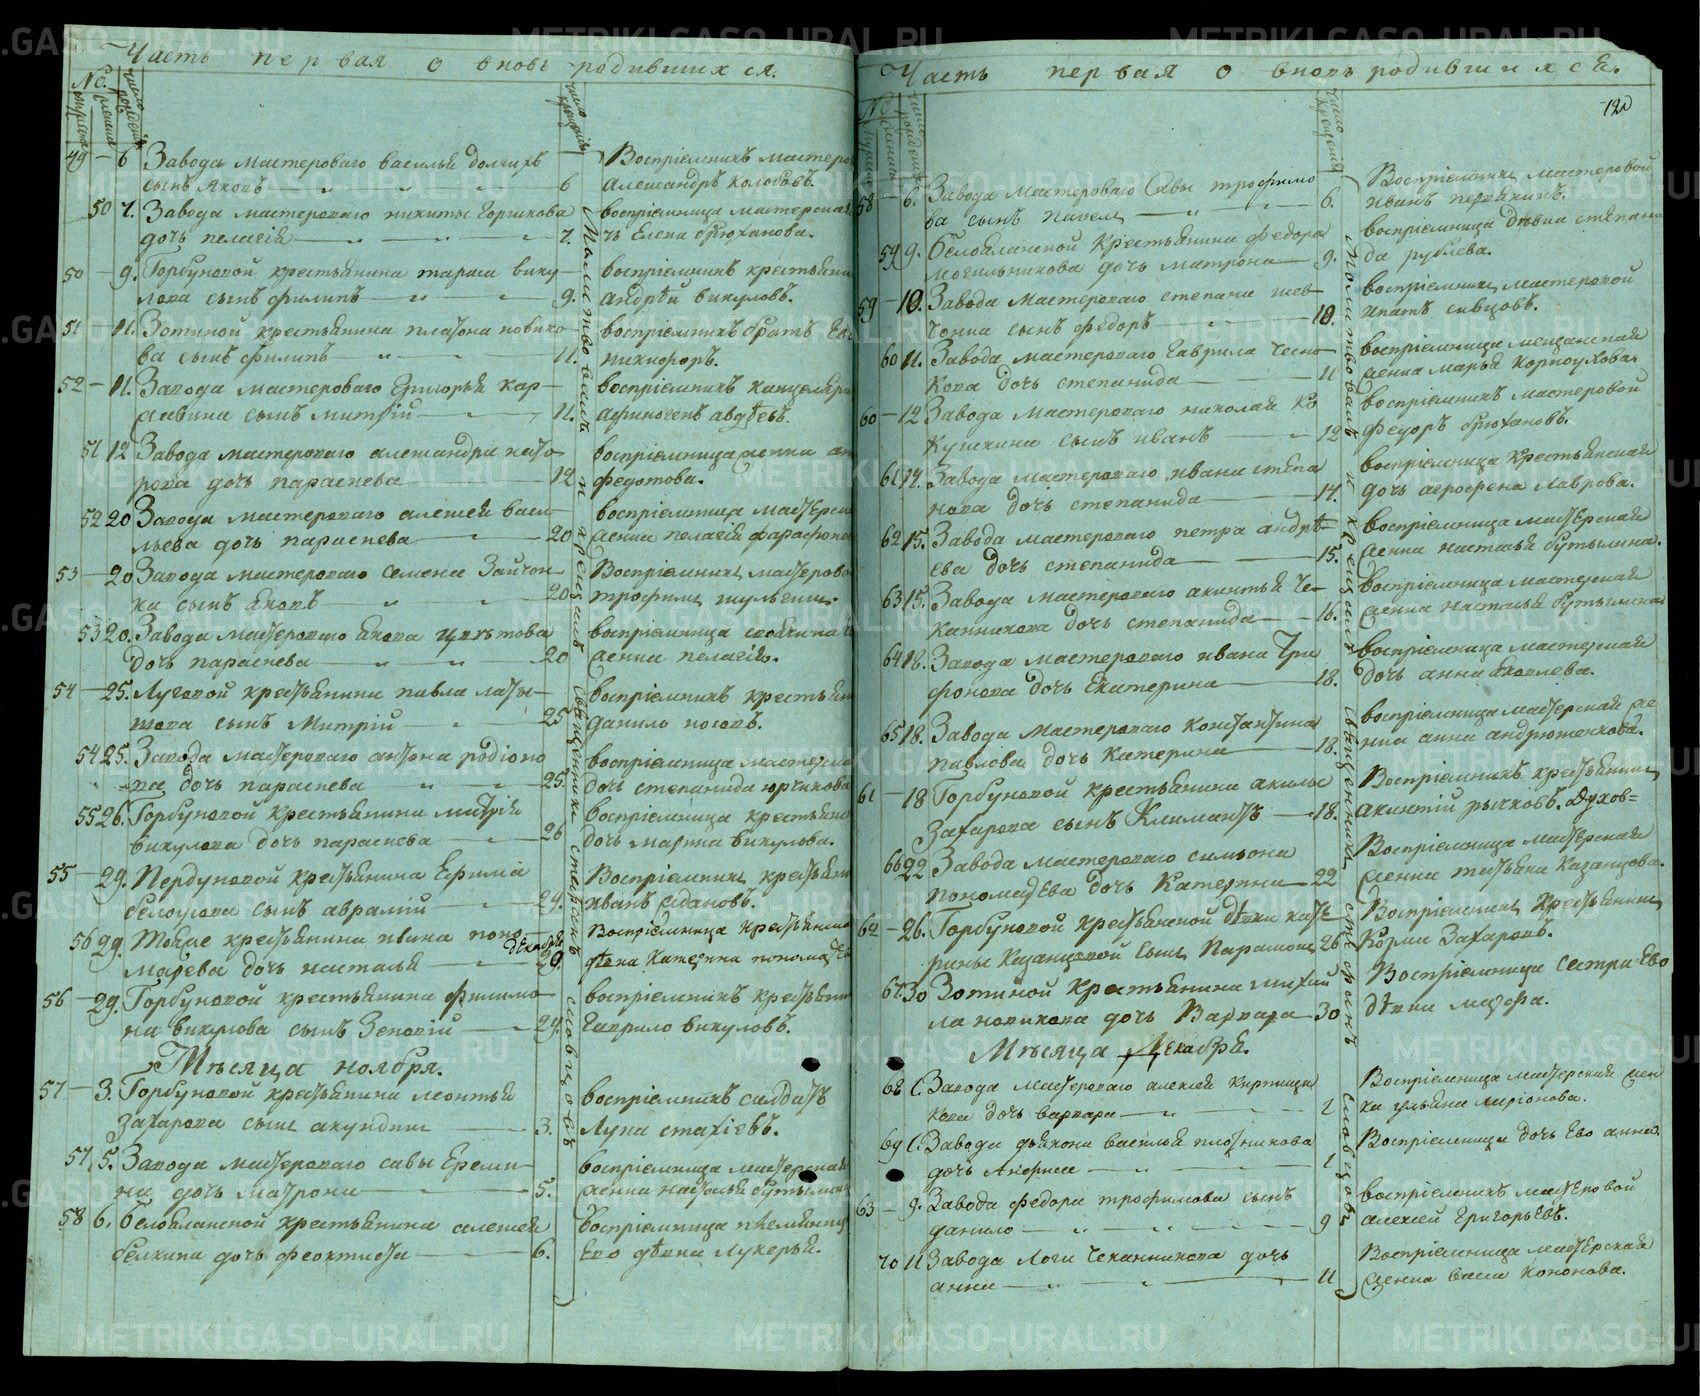 Часть первая о вновь родившихся.
№.
число рожденія
число крещенія
мужеска
женска
49 — 6 Завода мастероваго василья долгихъ
сынъ Яковъ — 6
Воспріемникъ мастеров
александръ колобовъ.
50 7. Завода мастероваго никиты Горшкова
дочь пелагія — 7.
воспріемница мастерская
Елена брюханова.
50 — 9. Горбуновой крестьянина тараса вику
лова сынъ филипъ — 9.
воспріемникъ крестьянин
андрѣй викуловъ.
51 — 11. Зотиной крестьянина платона новико
ва сынъ филипъ — 11.
воспріемникъ братъ Ево
никифоръ.
52 — 11. Завода мастероваго Григорья кар
савина сынъ митрій — 11.
воспріемникъ канцеляри
авдѣевъ.
51 12 Завода мастероваго александра назо
рова дочь параскева — 12
воспріемница женка ан
федотова.
52 20 Завода мастероваго алексея васи
льева дочь параскева — 20
воспріемница мастерска
женка пелагія фарафонов
53 — 20 Завода мастероваго семена Зайчон
ка сынъ яковъ — 20
Воспріемникъ мастерово
трофимъ шульгинъ.
53 20. Завода мастероваго якова цвѣтова
дочь параскева — 20
воспріемница
женка пелагія.
54 — 25. Луговой крестьянина павла латы
шова сынъ Митрій — 25
воспріемникъ крестьяни
данило носовъ.
54 25. Завода мастероваго антона родіоно
ва дочь параскева — 25.
воспріемница мастерска
дочь степанида юрчикова
55 26. Горбуновой крестьянина митрія
викулова дочь параскева — 26
воспріемница крестьянска
дочь марина викулова.
55 — 29. Пердуновой крестьянина Ефима
белоусова сынъ аврамій — 29.
Воспріемникъ крестьяни
иванъ ждановъ.
56 29. Тояже крестьянина ивана поно
марева дочь насталья — 29.
Воспріемница крестьянина
дѣвка Катерина пономарев
56 — 29. Горбуновой крестьянина филимо
на викулова сынъ Зеновій — 29.
воспріемникъ крестьяни
Гаврило викуловъ.
Мѣсяца ноября.
57 — 3. Горбуновой крестьянина леонтья
Захарова сынъ акундинъ — 3.
воспріемникъ салдатъ
Лука стахіевъ.
57 5. Завода мастероваго савы Ереми
на дочь матрона — 5.
воспріемница мастерская
женка насталья бутылкина
58 6. белобланской крестьянина алексея
белкина дочь феоктиста — 6.
воспріемница племянница
Ево дѣвка Лукерья.
Молитвовалъ и крещалъ священникъ стефанъ словцовъ
Часть первая о вновь родившихся.
120
58 — 6. Завода Мастероваго Савы трофимо
ва сынъ павелъ — 6.
Воспріемникъ мастеровой
иванъ
59 9. белобланской Крестьянина федора
могильникова дочь матрона — 9.
воспріемница дѣвка степани
да рублева.
59 — 10. Завода мастероваго степана шев
чонка сынъ федоръ — 10.
воспріемникъ мастеровой
ипатъ сивцовъ.
60 11. Завода мастероваго Гаврила чесно
кова дочь степанида — 11
воспріемница мещанская
женка марья корноухова.
60 — 12 Завода Мастероваго николая Ко
кушкина сынъ иванъ — 12
воспріемникъ мастеровой
федоръ брюхановъ.
61 14. Завода мастероваго ивана степа
нова дочь степанида — 14.
воспріемница крестьянская
дочь агрофена лаврова.
62 15. Завода мастероваго петра андрѣ
ева дочь степанида — 15.
воспріемница мастерская
женка насталья бутылкина.
63 15. Завода мастероваго акинтья че
канникова дочь степанида — 16.
воспріемница мастерская
женка насталья бутылкина
64 18. Завода мастероваго ивана Три
фонова дочь Екатерина — 18.
воспріемница мастерская
дочь анна яковлева.
65 18. Завода мастероваго Константина
павлова дочь Катерина — 18.
воспріемница мастерская же
нка анна андрюшенкова.
61 — 18 Горбуновой крестьянина акилы
Захарова сынъ Климантъ — 18.
Воспріемникъ крестьянинъ
акинтій рычковъ. Духов=
66 22 Завода мастероваго симеона
пономарева дочь Катерина — 22
Воспріемница мастерская
женка татьяна Казанцова.
62 — 26. Горбуновой крестьянской дѣвки кате
рины Казанцовой сынъ Парамонъ 26
Воспріемникъ крестьянинъ
Карпъ Захаровъ.
67. 30 Зотиной крестьянина михаи
ла новикова дочь Варвара — 30
Воспріемница сестра Ево
дѣвка марфа.
Мѣсяца Декабря.
68 1. Завода мастероваго алексея Кирпищи
кова дочь варвара — 1
Воспріемница мастерская жен
ка ульяна ларіонова.
69 1. Завода дьякона василья плотникова
дочь Анфиса — 1
Воспріемница дочь Ево анна.
63 — 9. Завода федора трофимова сынъ
данило — 9
воспріемникъ мастеровой
алексей григорьевъ.
70 11 Завода Логи Чеканникова дочь
анна — 11
Воспріемница мастерская
женка васа кононова.
Молитвовалъ и крещалъ священникъ стефанъ словцовъ
METRIKI.GASO-URAL.RU